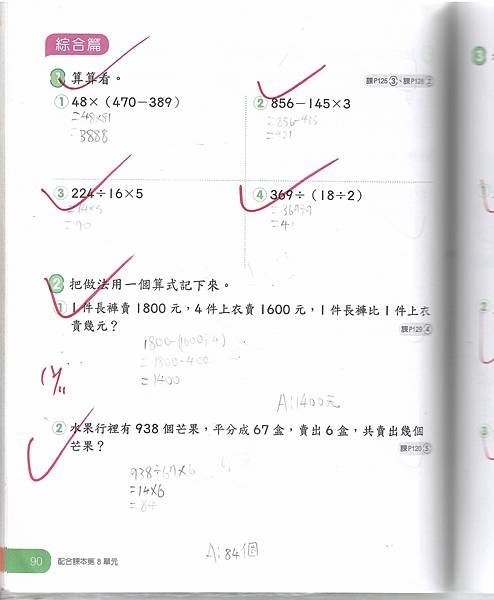 綜合篇
1 算算看。 課P125③、課P128②
① 48×(470−389) ② 856−145×3
=48×81 =856-435
=3888 =421
③ 224÷16×5 ④ 369÷(18÷2)
=14×5 =369÷9
=70 =41
2 把做法用一個算式記下來。
① 1件長褲賣1800元,4件上衣賣1600元,1件長褲比1件上衣
貴幾元? 課P129④
1800-(1600÷4)
=1800-400
=1400
A:1400元
② 水果行裡有938個芒果,平分成67盒,賣出6盒,共賣出幾個
芒果? 課P120⑤
938÷67×6
=14×6
=84
A:84個
90 配合課本第8單元